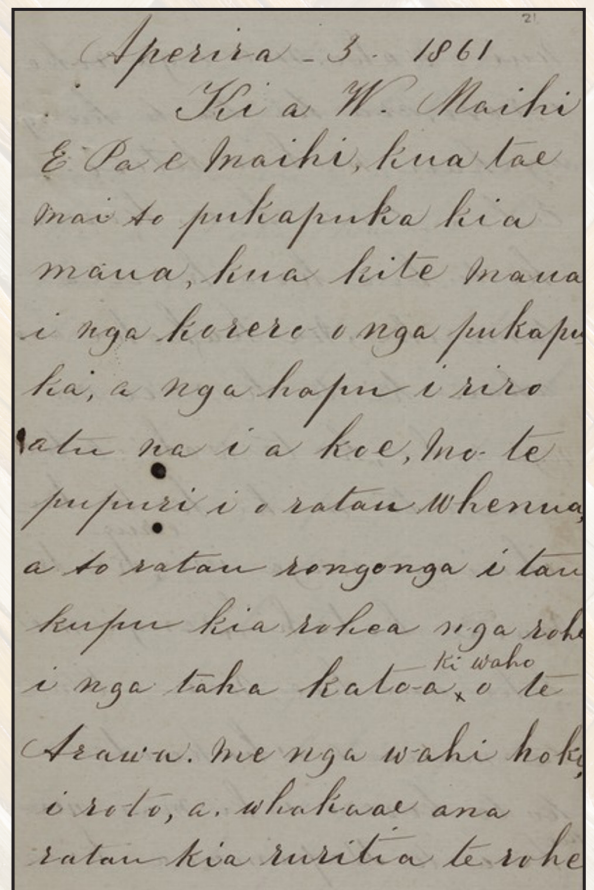 21
Aperira - 3. 1861
Ki a W. Maihi
E Pa e Maihi, kua tae
mai to pukapuka kia
maua, kua kite maua
i nga korero o nga pukapu
ka, a nga hapu i riro
atu na i a koe, mo te
pupuri i o ratau whenua,
a to ratau rongonga i tau
kupu kia rohea nga rohe
ki waho
i nga taha katoa x o te
Arawa. me nga wahi hoki,
i roto, a. whakaae ana
ratau kia ruritia te rohe